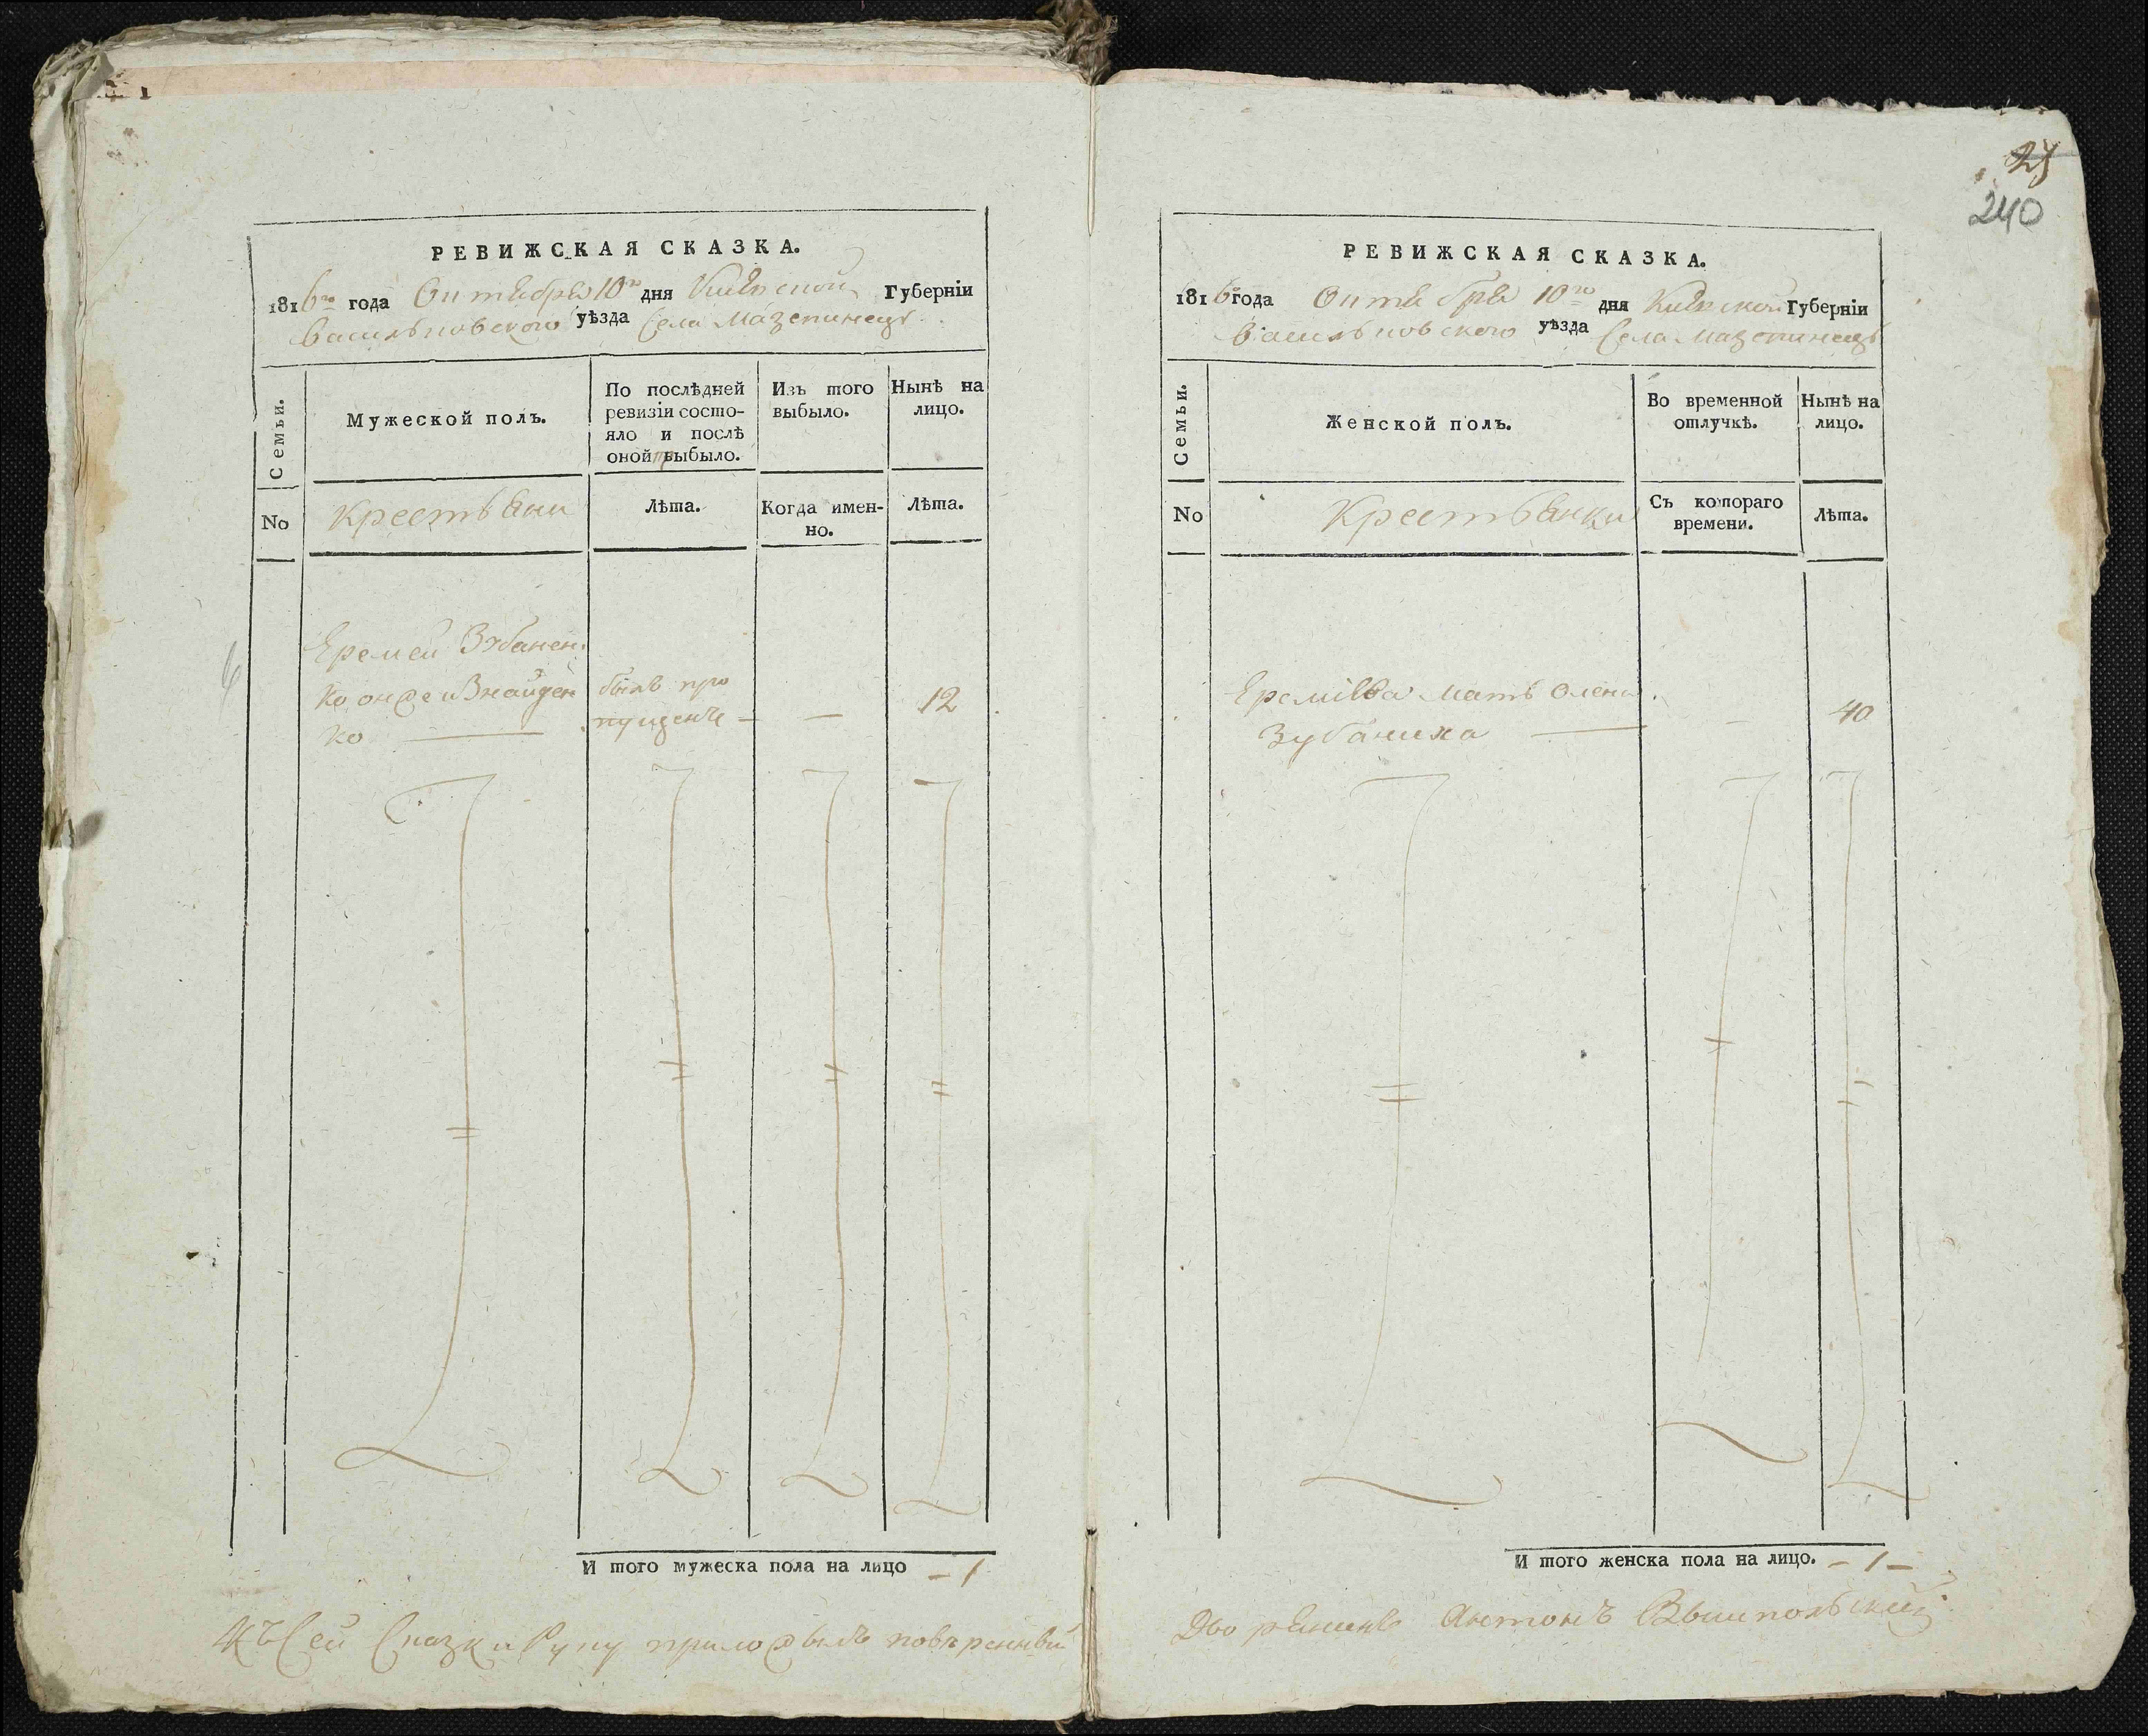 РЕВИЖСКАЯ СКАЗКА.
1816го года Октября 10го дня Киевской Губерніи
Васильковского уѣзда Села Мазепинецъ
Семьи.
Мужеской полъ.
По послѣдней
ревизіи состо-
яло и послѣ
оной выбыло.
Изъ того
выбыло.
Нынѣ на
лицо.
No
Крестьяни
Лѣта.
Когда имен-
но.
Лѣта.
Еремей Зубанен
ко онже и Знайден
ко
былъ про
пущенъ —
—
12
И того мужеска пола на лицо – 1
Къ Сей Сказки Руку приложылъ повѣренный
25
240
РЕВИЖСКАЯ СКАЗКА.
1816го года Октября 10го дня Киевской Губерніи
Васильковского уѣзда Села Мазепинецъ
Семьи.
Женской полъ.
Во временной
отлучкѣ.
Нынѣ на
лицо.
No
Крестьянки
Съ котораго
времени.
Лѣта.
Ереміева мать Олена
Зубаниха
—
40
И того женска пола на лицо. – 1 –
Дворянинъ Антонъ Вышпольскій